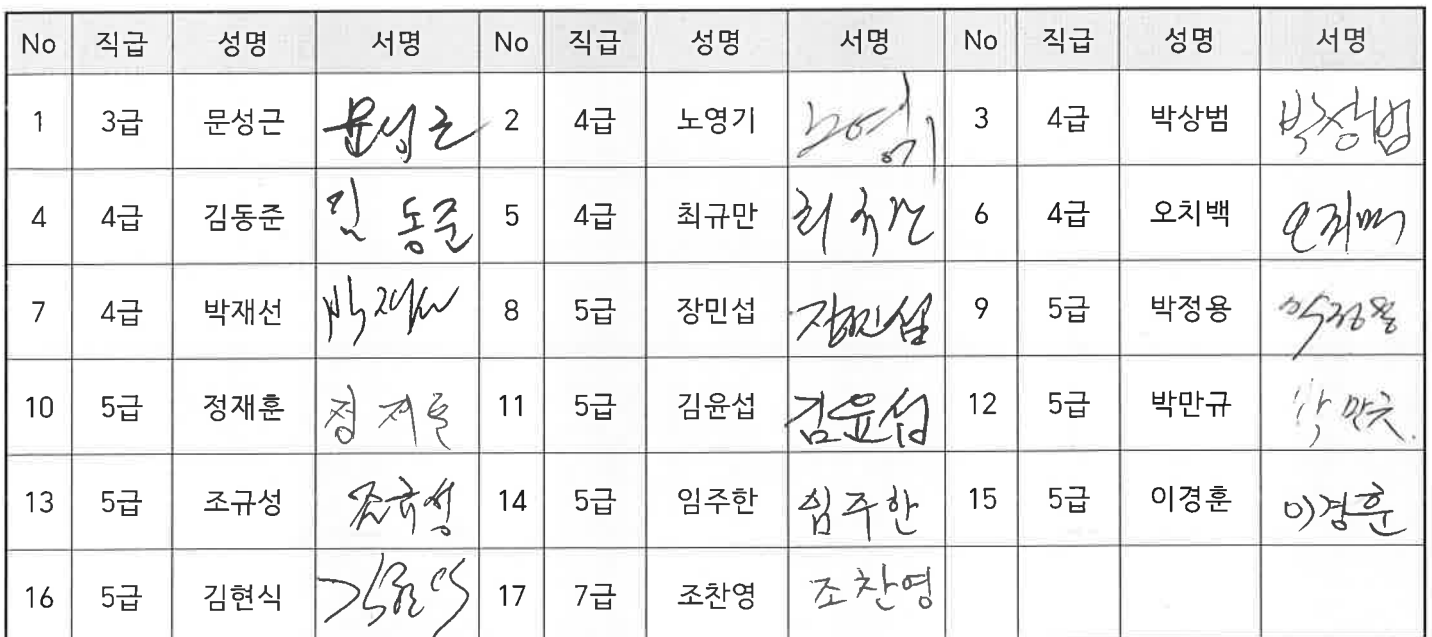 No 직급 성명 서명 No 직급 성명 서명 No 직급 성명 서명
1 3급 문성근 문성근 2 4급 노영기 노영기 3 4급 박상범 박상범
4 4급 김동준 김동준 5 4급 최규만 최규만 6 4급 오치백 오치백
7 4급 박재선 박재선 8 5급 장민섭 장민섭 9 5급 박정용 박정용
10 5급 정재훈 정재훈 11 5급 김윤섭 김윤섭 12 5급 박만규 박만규
13 5급 조규성 조규성 14 5급 임주한 임주한 15 5급 이경훈 이경훈
16 5급 김현식 17 7급 조찬영 조찬영